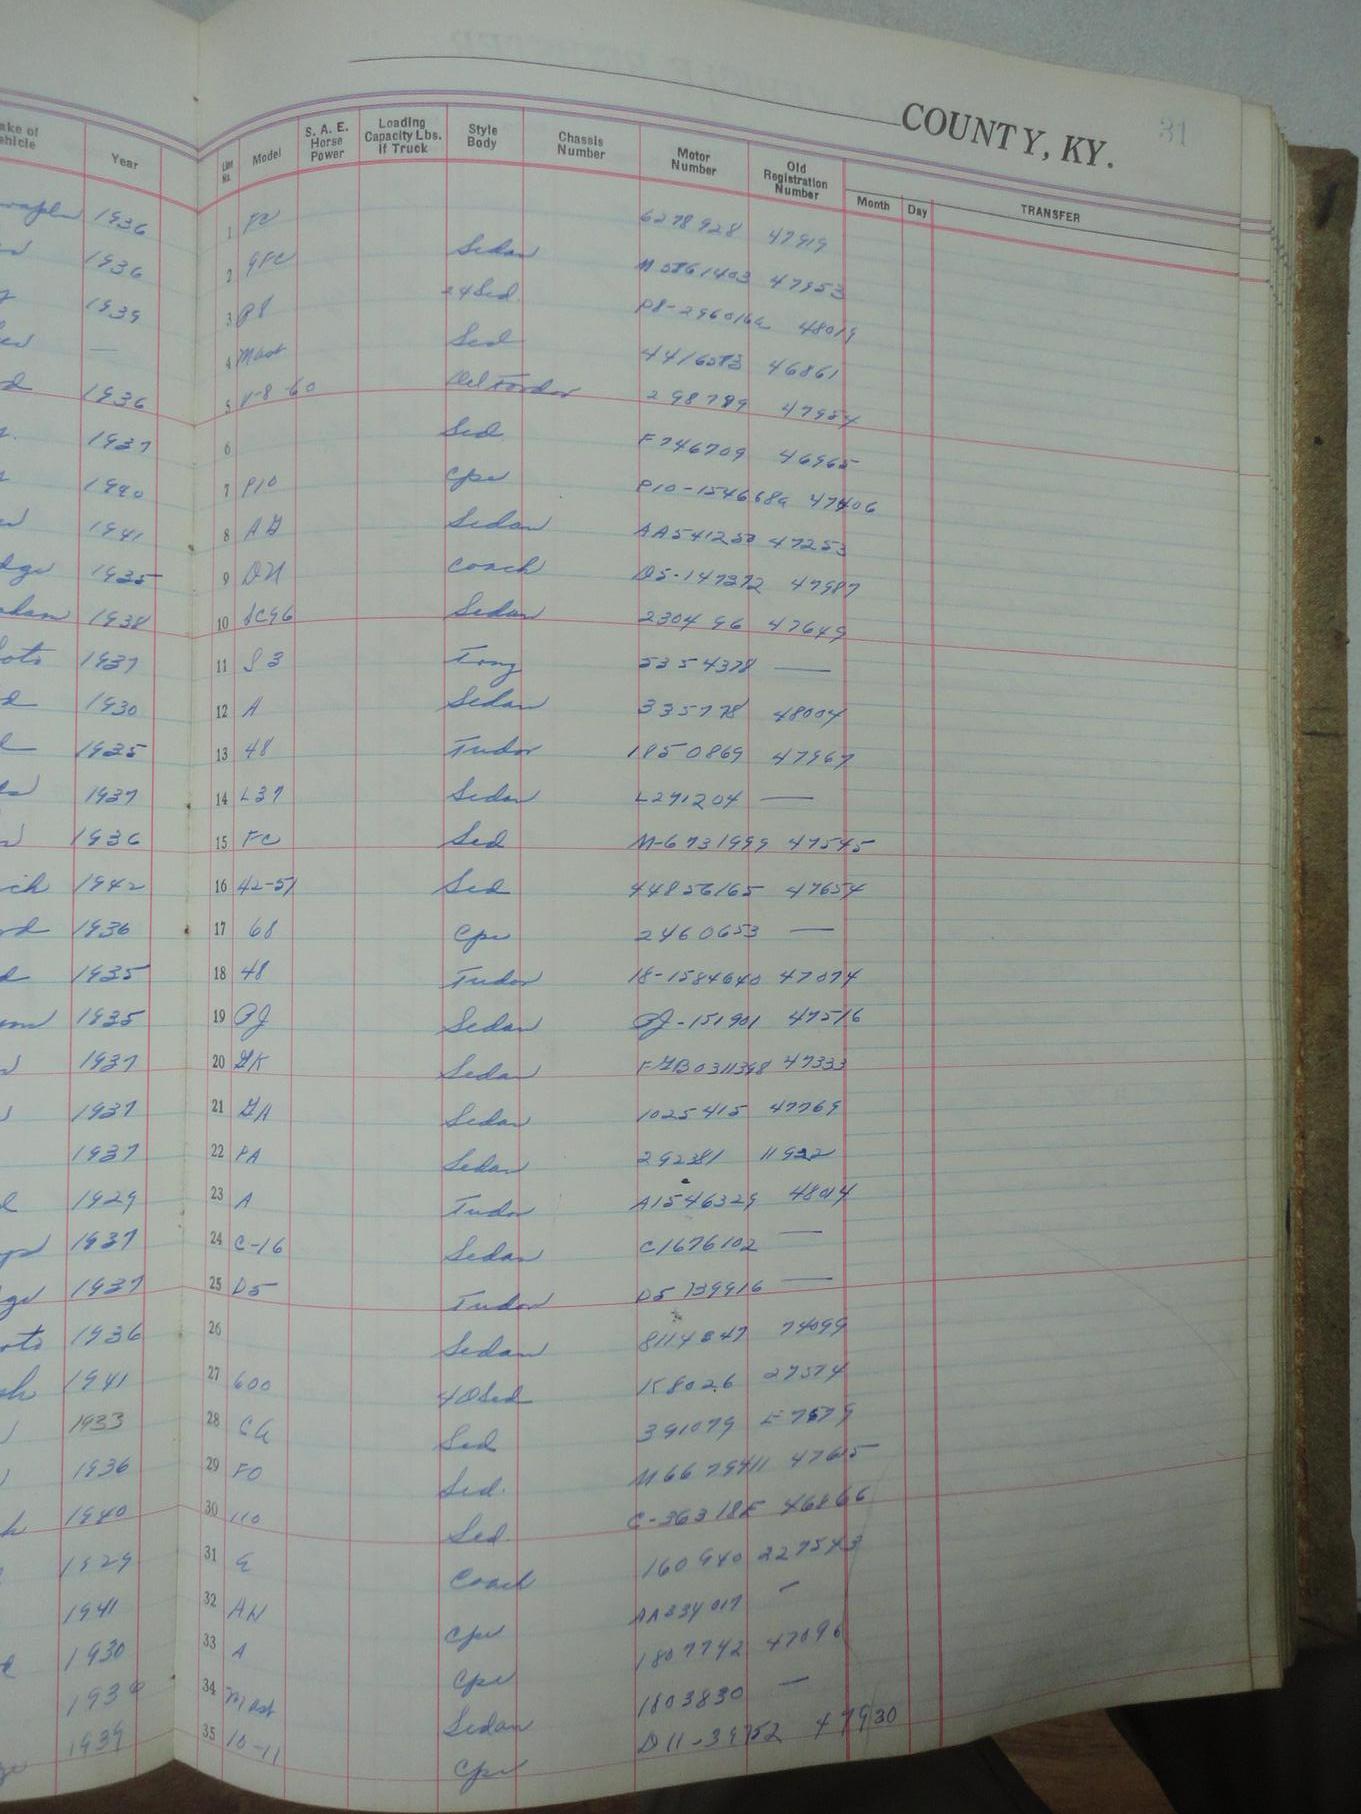 COUNTY, KY. 31
Year Line No. Model S. A. E. Horse Power Loading Capacity Lbs. If Truck Style Body Chassis Number Motor Number Old Registration Number Month Day TRANSFER
1936 1 6278928 47919
1936 2 Sedan 47953
1939 3 P8 Sed. 48019
— 4 Mast Sed 46861
1936 5 V-8 60 Del Fordor 298789 47954
1937 6 Sed. F746709 46965
1940 7 P10 Cpe P10-154668a 47406
1941 8 Sedan AA541250 47253
1935 9 DU Coach D5-147372 47987
1938 10 Sedan 230496 47649
1937 11 S3 5354378 —
1930 12 A Sedan 335778 48004
1935 13 48 Tudor 1850869 47967
1937 14 L37 Sedan L271204 —
1936 15 FC Sed M-6731999 47545
1942 16 42-51 Sed 44856165 47654
1936 17 68 Cpe 2460653 —
1935 18 48 Tudor 18-1584640 47074
1935 19 PJ Sedan PJ-151901 47516
1937 20 Sedan 47333
1937 21 GA Sedan 1025415 47769
1937 22 PA Sedan 292381 11922
1929 23 A Tudor A1546329 48014
1937 24 C-16 Sedan C1676102 —
1937 25 D5 Tudor D5 139916 —
1936 26 Sedan 74099
1941 27 600 4DSed K8026 27574
1933 28 Sed 391079
1936 29 Sed. 47615
1940 30 110 Sed. 46866
1929 31 Coach 160940 227543
1941 32 Cpe —
1930 33 A Cpe 1807742 47096
34 Mast Sedan 1803830 —
1939 35 10-11 Cpe 47930